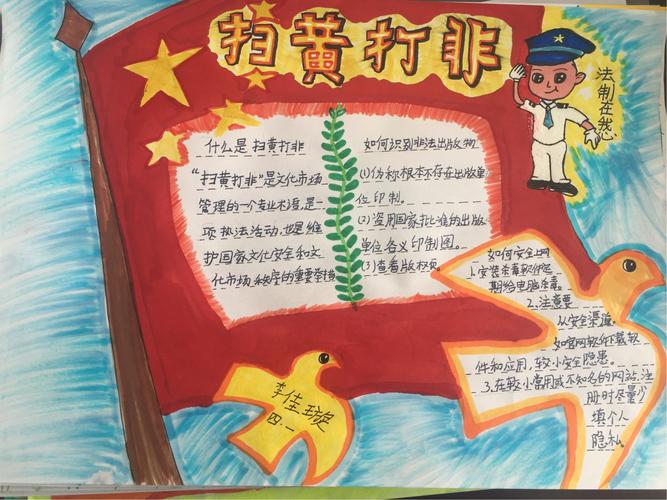 扫黄打非
法制在我心
什么是扫黄打非
“扫黄打非”是文化市场
管理的一个专业术语,是一
项执法活动,也是维
护国家文化安全和文
化市场秩序的重要举措
如何识别非法出版物
(1)伪称根本不存在出版单
位印制。
(2)盗用国家批准的出版
单位名义印制图。
(3)查看版权页。
如何安全上网
1.安装杀毒软件定
期给电脑杀毒。
2.注意要
从安全渠道,
如官网软件下载软
件和应用,较小安全隐患。
3.在较小常用或不知名的网站,注
册时尽量少
填个人
隐私。
李佳璇
四.一